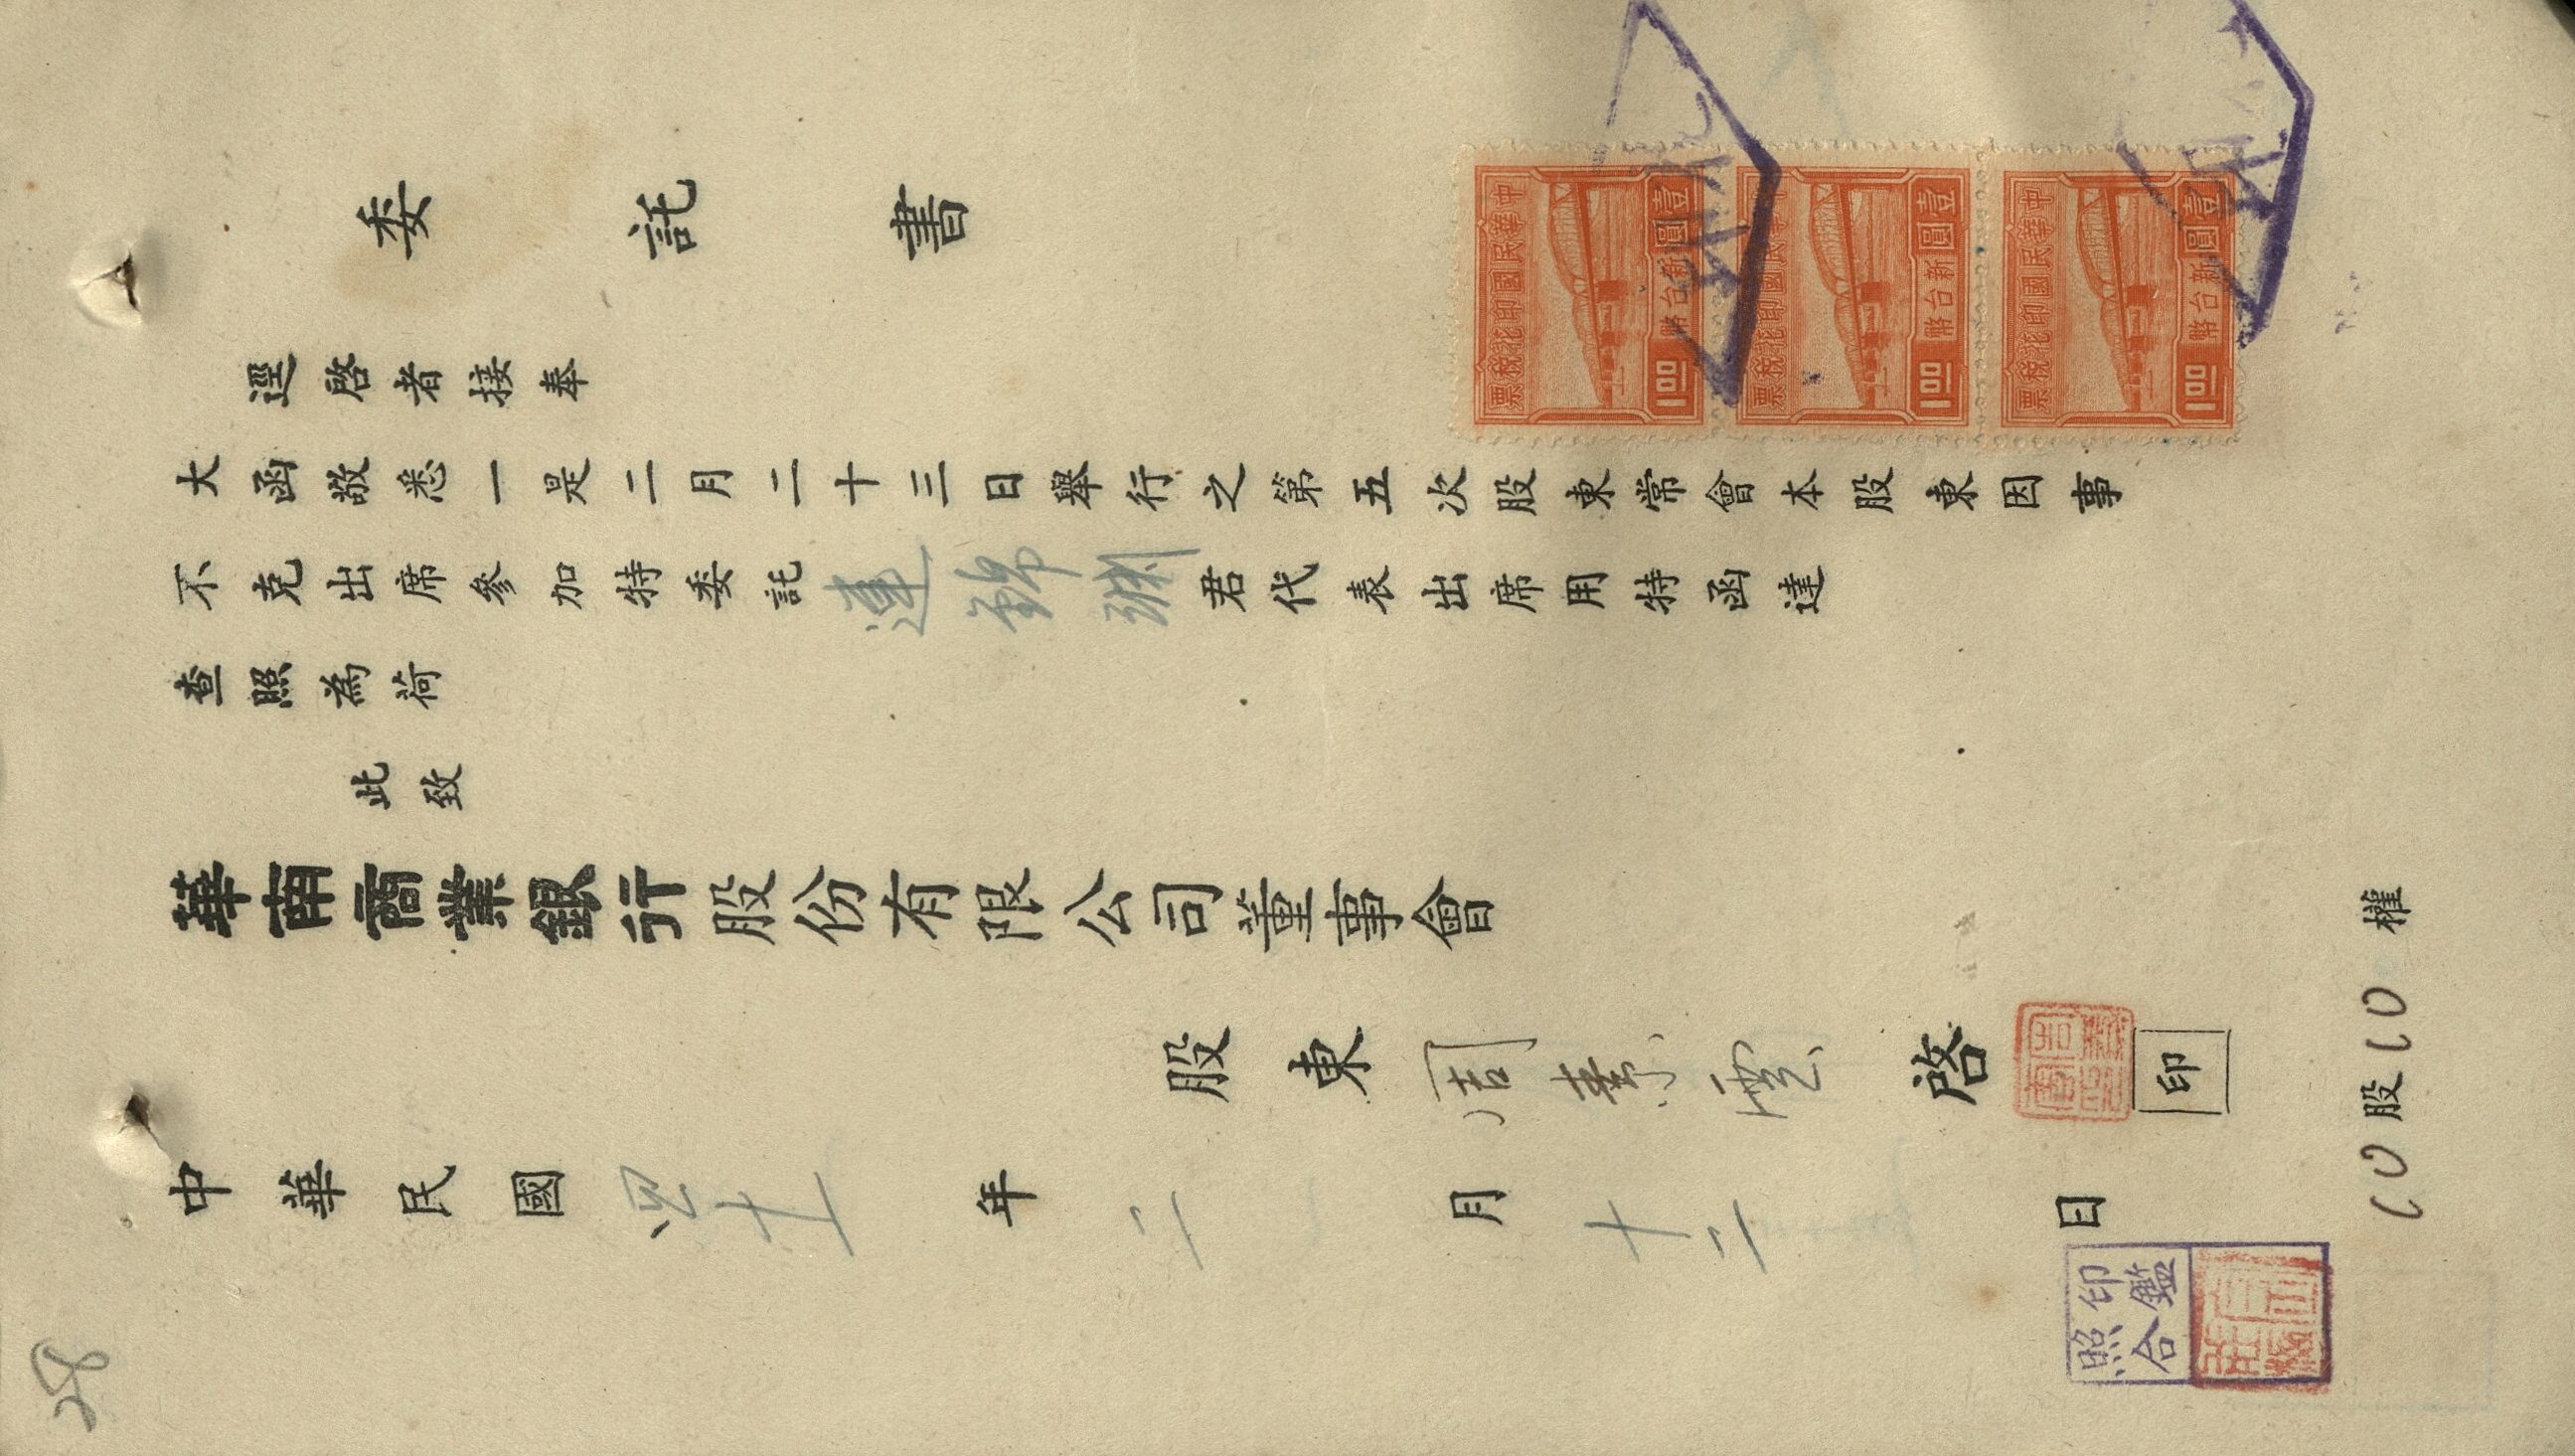 委託書
逕啓者接奉
大函敬悉一是二月二十三日舉行之第五次股東常會本股東因事
不克出席參加特委託連錦淵君代表出席用特函達
查照為荷
此致
華南商業銀行股份有限公司董事會
股東周素雲啓
印
中華民國四十一年二月十二日
10股10權
中華民國印花稅票
壹圓
新台幣
1.00
中華民國印花稅票
壹圓
新台幣
1.00
中華民國印花稅票
壹圓
新台幣
1.00
印鑑
照合
28